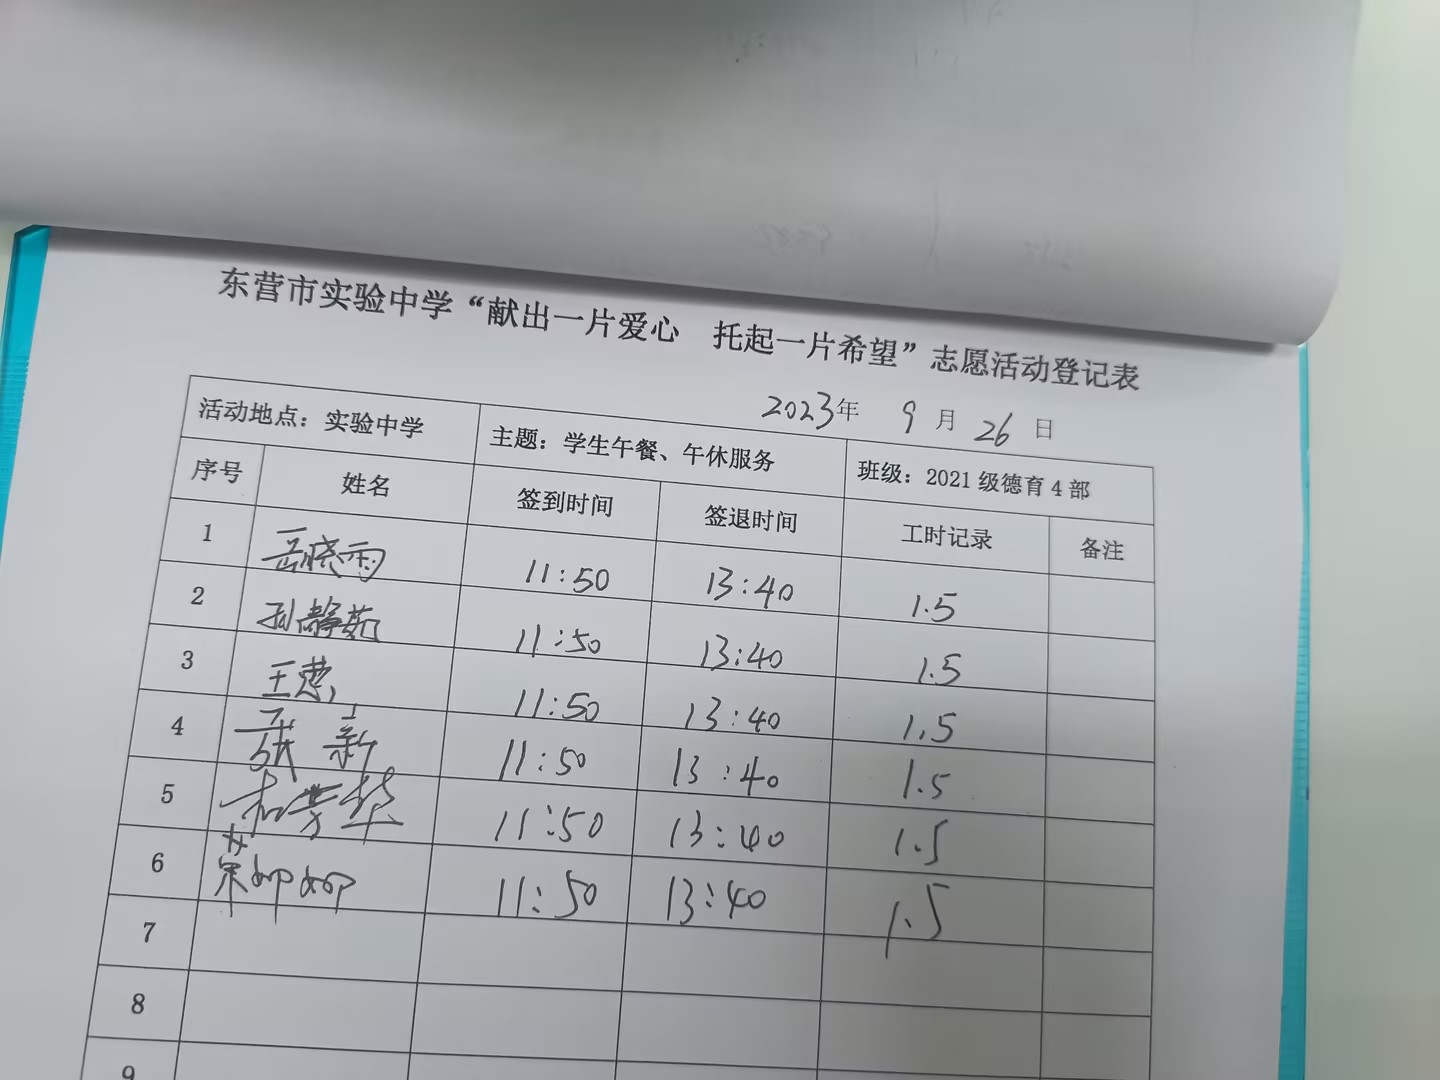 东营市实验中学“献出一片爱心 托起一片希望”志愿活动登记表
2023年 9月26日
活动地点：实验中学 主题：学生午餐、午休服务 班级：2021级德育4部
序号 姓名 签到时间 签退时间 工时记录 备注
1 岳晓雨 11:50 13:40 1.5
2 孙静茹 11:50 13:40 1.5
3 王慧 11:50 13:40 1.5
4 张新 11:50 13:40 1.5
5 11:50 13:40 1.5
6 11:50 13:40 1.5
7
8
9